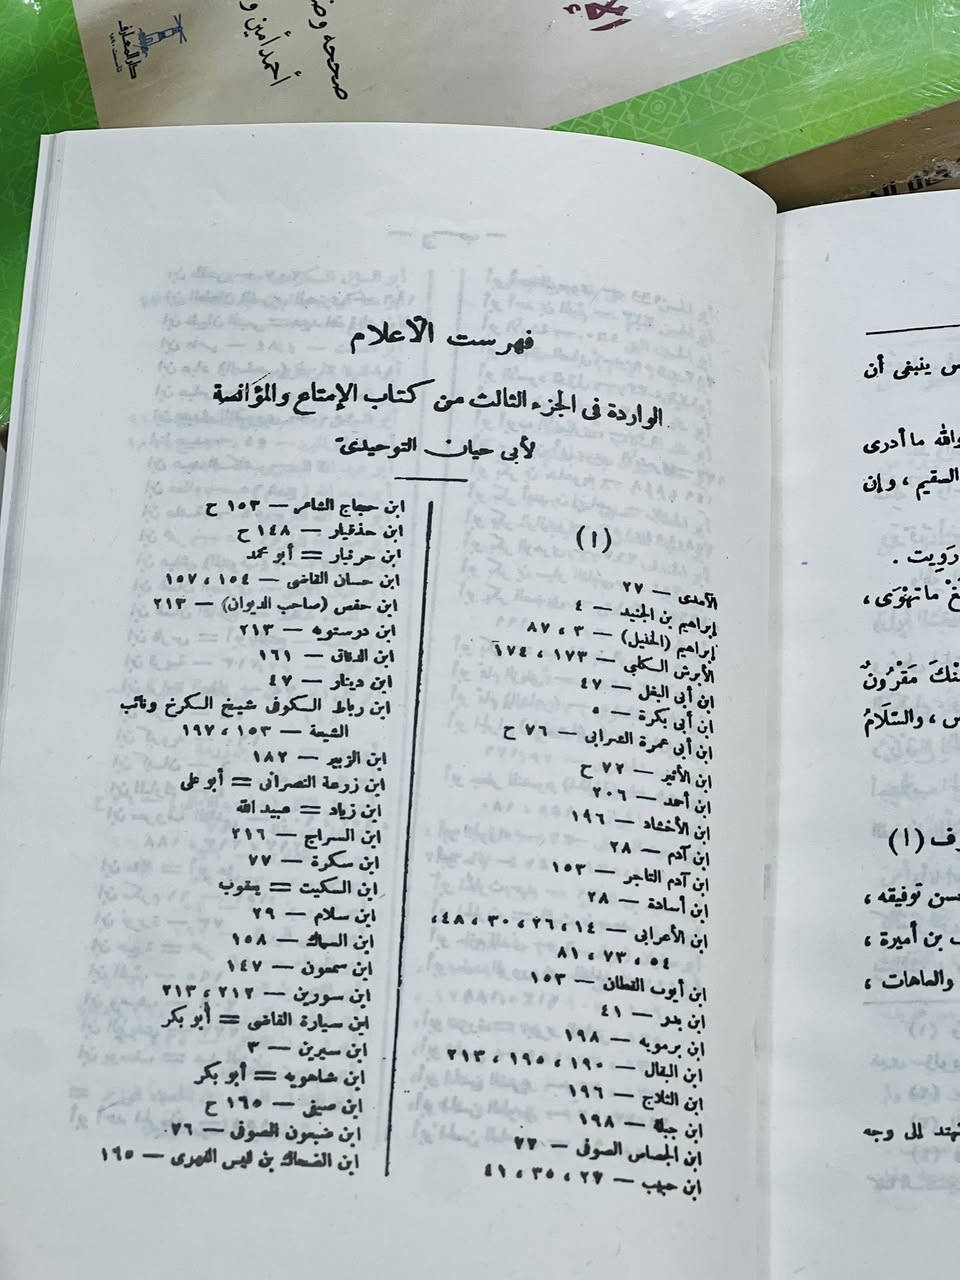 صححه وض
أحمد أمين و
دار المعارف
فهرست الأعلام
الواردة فى الجزء الثالث من كتاب الإمتاع والمؤانسة
لأبى حيان التوحيدى
(ا)
الآمدى — ٢٧
إبراهيم بن الجنيد — ٤
إبراهيم (الخليل) — ٣ ، ٨٧
الأبرش الكلبى — ١٧٣ ، ١٧٤
ابن أبى البغل — ٤٧
ابن أبى بكرة — ٥
ابن أبى عمرة الشرابى — ٧٦ ح
ابن الأثير — ٧٢ ح
ابن أحمد — ٢٠٦
ابن الأخشاد — ١٩٦
ابن آدم — ٢٨
ابن آدم التاجر — ١٥٣
ابن أسادة — ٢٨
ابن الأعرابى — ١٤ ، ٢٦ ، ٣٠ ، ٤٨ ،
٥٤ ، ٧٣ ، ٨١
ابن أيوب القطان — ١٥٣
ابن بدر — ٤١
ابن برمويه — ١٩٨
ابن البقال — ١٩٠ ، ١٩٥ ، ٢١٣
ابن الثلاج — ١٩٦
ابن جبلة — ١٩٨
ابن الجصاص الصوفى — ٢٢
ابن حبيب — ٢٧ ، ٣٥ ، ٤١
ابن حجاج الشاعر — ١٥٣ ح
ابن حذقيار — ١٤٨ ح
ابن حرنبار = أبو محمد
ابن حسان القاضى — ١٥٤ ، ١٥٧
ابن حفص (صاحب الديوان) — ٢١٣
ابن درستويه — ٢١٣
ابن الدقاق — ١٦١
ابن دينار — ٤٧
ابن رباط الكوفى شيخ الكرخ ونائب
الشيعة — ١٥٣ ، ١٩٧
ابن الزبير — ١٨٢
ابن زرعة النصرانى = أبو على
ابن زياد = عبيد الله
ابن السراج — ٢١٦
ابن سكرة — ٧٧
ابن السكيت = يعقوب
ابن سلام — ٢٩
ابن السماك — ١٥٨
ابن سمعون — ١٤٧
ابن سورين — ٢١٢ ، ٢١٣
ابن سيارة القاضى = أبو بكر
ابن سيرين — ٣
ابن شاهويه = أبو بكر
ابن صيفى — ١٦٥ ح
ابن ضبعون الصوفى — ٢٦
ابن الضحاك بن قيس الفهرى — ١٦٥
س ينبغى أن
والله ما أدرى
السقيم ، وإن
رويت .
ما تهْوَى ،
مَقْرُونٌ
س ، والسّلَامُ
(ا)
حسن توفيقه ،
ب بن أميرة ،
والماهات ،
إلى وجه